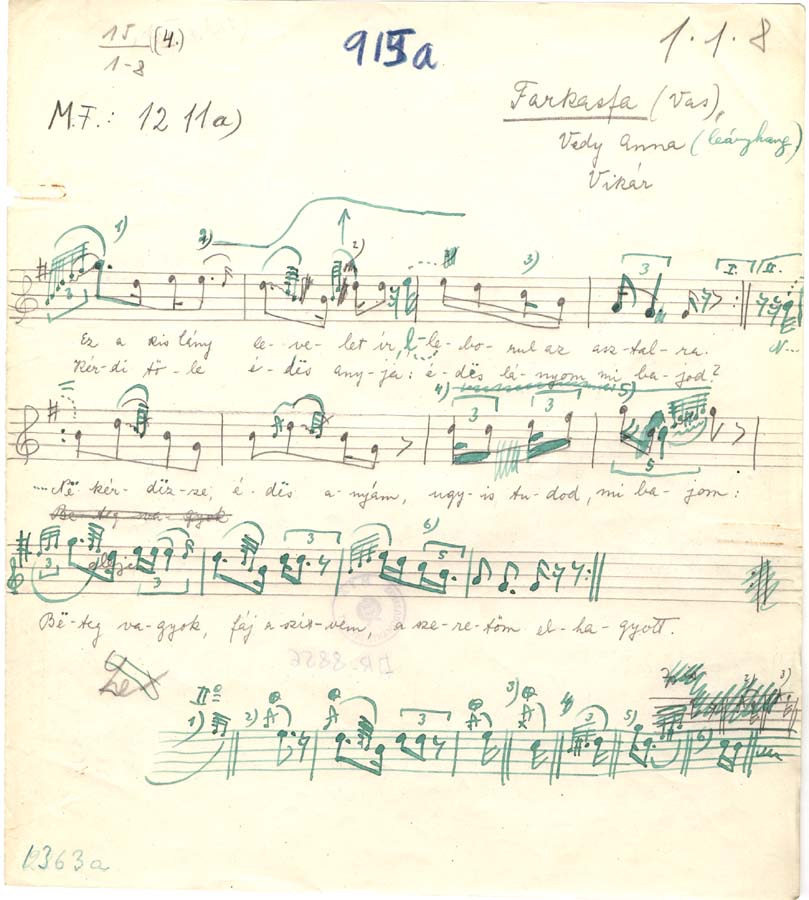 15 (4.)
1-8
915a
1.1.8
M.F.: 12 11a)
Farkasfa (Vas),
Vedy Anna (leányhang)
Vikár
1) 2) 2) 3) 3 3 I. II.
Ez a kis lány le-ve-let ír, le-bo-rul az asz-tal-ra.
Kér-di tő-le é-dës any-ja: é-dës lá-nyom mi ba-jod? N...
4) 3 3 5) 5
Në kér-dëz-ze, é-dës a-nyám, ugy-is tu-dod, mi ba-jom:
Be-teg va-gyok
3 3 3 6) 5
Bë-teg va-gyok, fáj a szí-vem, a sze-re-tőm el-ha-gyott.
II
1) 2) 3 3) 4) 3 5) 6)
1363a